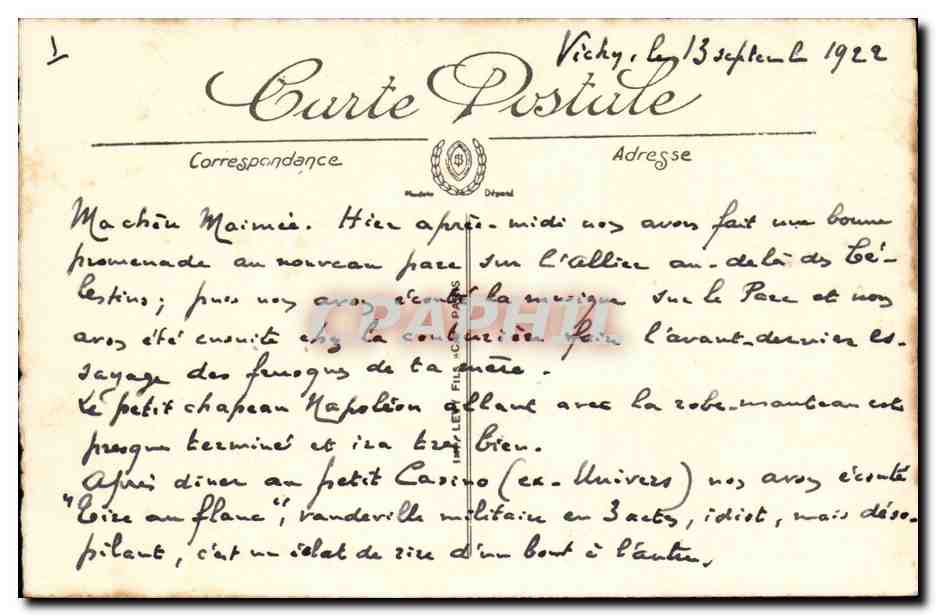 1
Vichy, le 13 septembre 1922
Carte Postale
Correspondance
Adresse
Modèle Déposé
Ma chère Maimée. Hier après-midi nous avons fait une bonne
promenade au nouveau parc sur l'Allier au-delà des Cé-
lestins ; puis nous avons écouté la musique sur le Parc et nous
avons été ensuite chez la couturière faire l'avant-dernier es-
sayage des frusques de ta mère.
Le petit chapeau Napoléon allant avec la robe-manteau est
presque terminé et ira très bien.
Après diner au petit Casino (ex-Univers) nous avons écouté
"Tire au flanc", vaudeville militaire en 3 actes, idiot, mais déso-
pilant, c'est un éclat de rire d'un bout à l'autre.
IMP. LEVY FILS & Cie PARIS
CPAPHIL